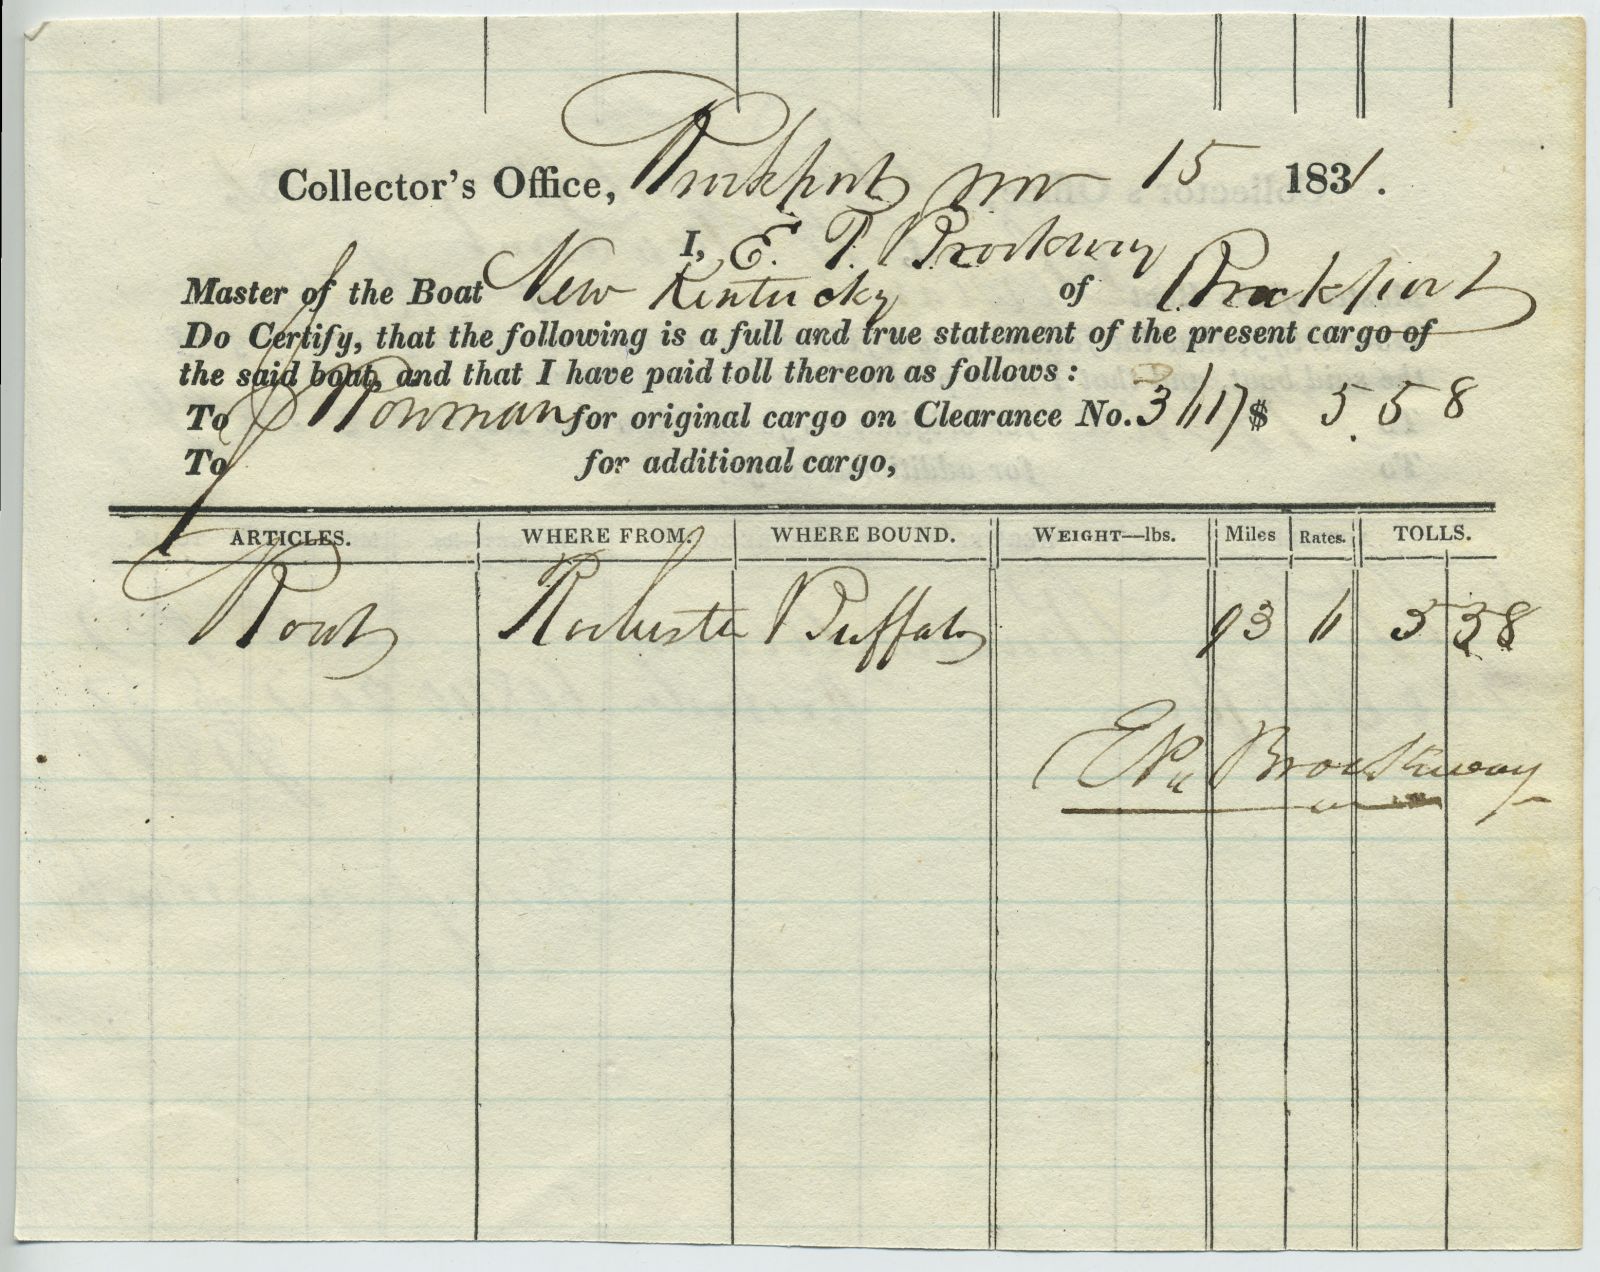 Collector's Office, Brockport Nov 15 1831.
I, E. P. Brockway
Master of the Boat New Kentucky of Brockport
Do Certify, that the following is a full and true statement of the present cargo of
the said boat, and that I have paid toll thereon as follows :
To J Bowman for original cargo on Clearance No. $ 5.58
To for additional cargo,
ARTICLES. WHERE FROM. WHERE BOUND. WEIGHT—lbs. Miles Rates. TOLLS.
Boat Rochester Buffalo 93 6 5 58
E P Brockway